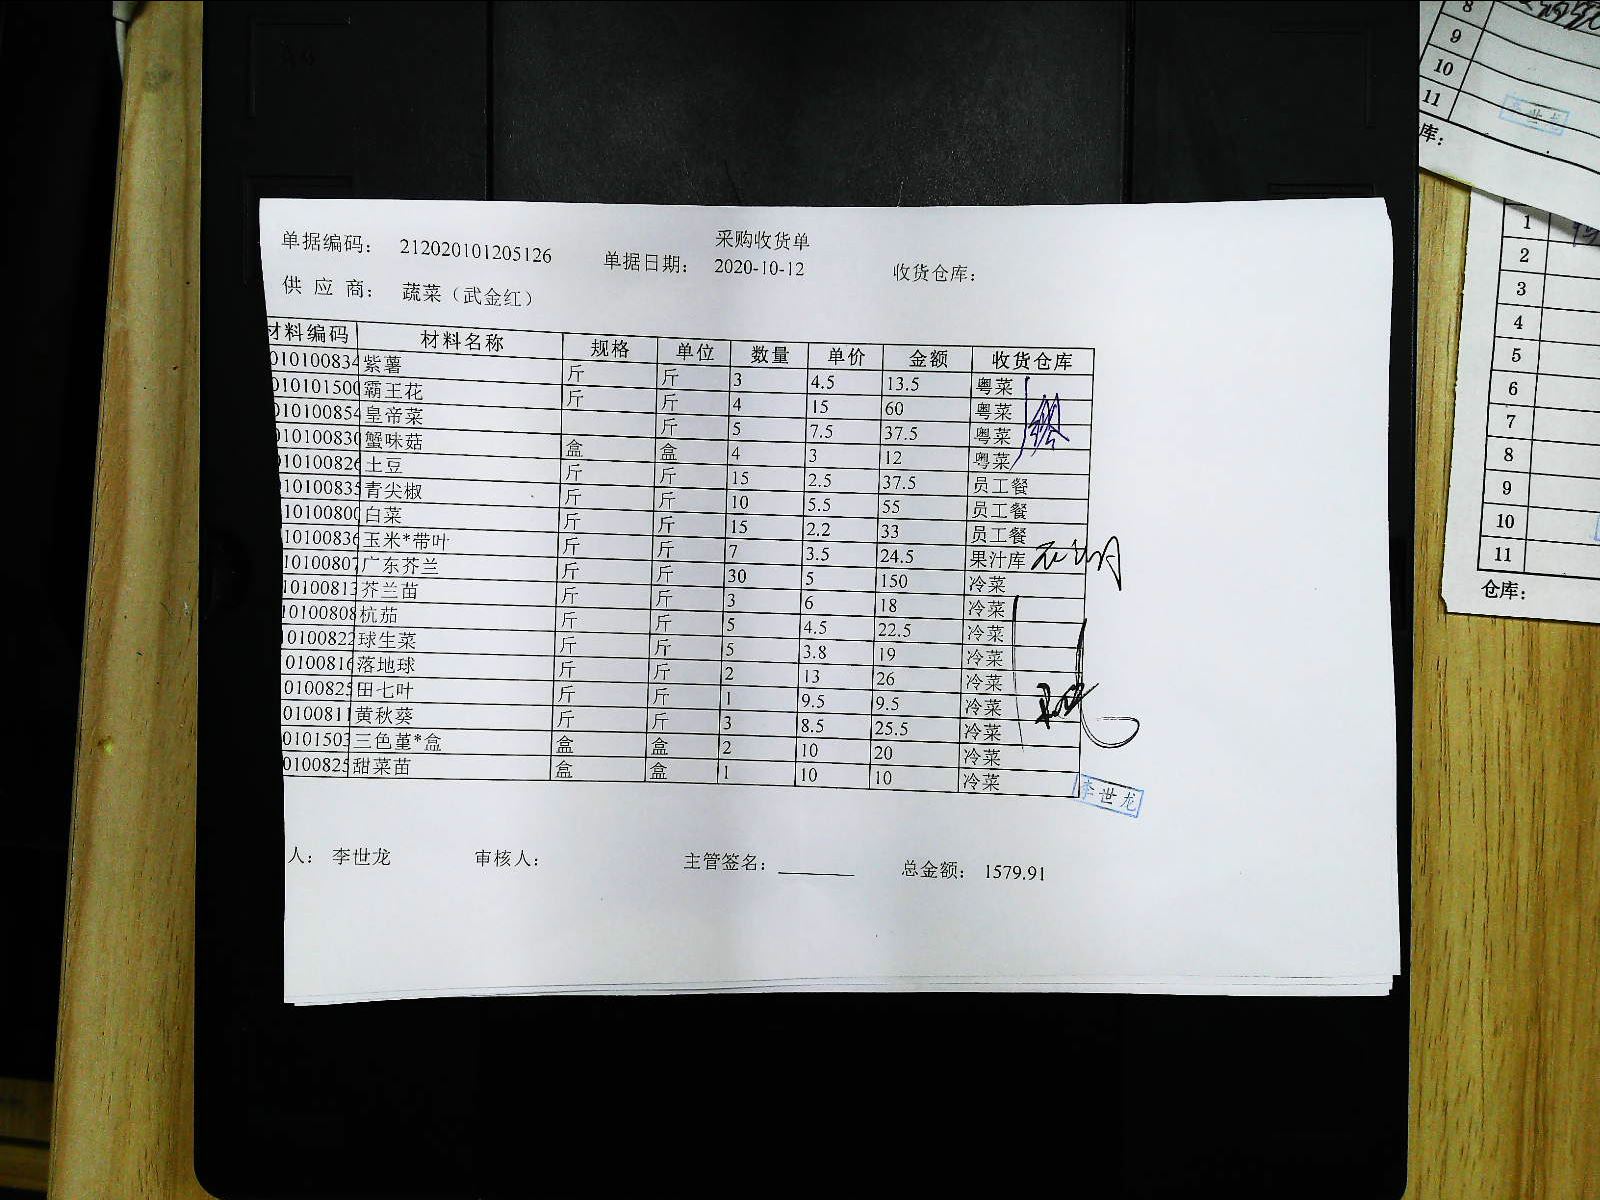 采购收货单
单据编码： 212020101205126 单据日期： 2020-10-12 收货仓库：
供 应 商： 蔬菜（武金红）
材料编码 材料名称 规格 单位 数量 单价 金额 收货仓库
010100834 紫薯 斤 斤 3 4.5 13.5 粤菜
010101500 霸王花 斤 斤 4 15 60 粤菜
010100854 皇帝菜 斤 5 7.5 37.5 粤菜
010100830 蟹味菇 盒 盒 4 3 12 粤菜
10100826 土豆 斤 斤 15 2.5 37.5 员工餐
10100835 青尖椒 斤 斤 10 5.5 55 员工餐
10100800 白菜 斤 斤 15 2.2 33 员工餐
10100836 玉米*带叶 斤 斤 7 3.5 24.5 果汁库
10100807 广东芥兰 斤 斤 30 5 150 冷菜
10100813 芥兰苗 斤 斤 3 6 18 冷菜
10100808 杭茄 斤 斤 5 4.5 22.5 冷菜
10100822 球生菜 斤 斤 5 3.8 19 冷菜
0100816 落地球 斤 斤 2 13 26 冷菜
0100825 田七叶 斤 斤 1 9.5 9.5 冷菜
0100811 黄秋葵 斤 斤 3 8.5 25.5 冷菜
0101503 三色堇*盒 盒 盒 2 10 20 冷菜
0100825 甜菜苗 盒 盒 1 10 10 冷菜
李世龙
人： 李世龙 审核人： 主管签名： 总金额： 1579.91
8
9
10
11
李世龙
库：
1
2
3
4
5
6
7
8
9
10
11
仓库：